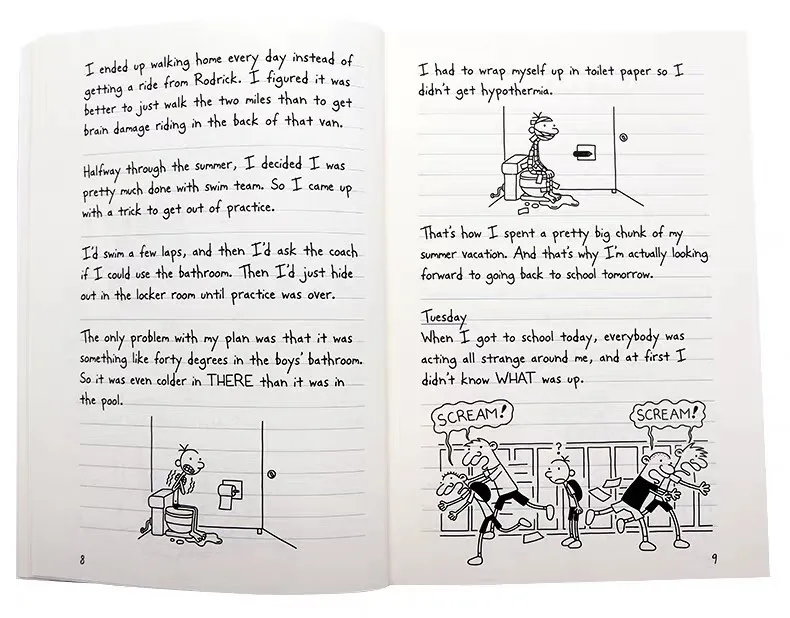 I ended up walking home every day instead of
getting a ride from Rodrick. I figured it was
better to just walk the two miles than to get
brain damage riding in the back of that van.
Halfway through the summer, I decided I was
pretty much done with swim team. So I came up
with a trick to get out of practice.
I'd swim a few laps, and then I'd ask the coach
if I could use the bathroom. Then I'd just hide
out in the locker room until practice was over.
The only problem with my plan was that it was
something like forty degrees in the boys' bathroom.
So it was even colder in THERE than it was in
the pool.
8
I had to wrap myself up in toilet paper so I
didn't get hypothermia.
That's how I spent a pretty big chunk of my
summer vacation. And that's why I'm actually looking
forward to going back to school tomorrow.
Tuesday
When I got to school today, everybody was
acting all strange around me, and at first I
didn't know WHAT was up.
SCREAM!
?
SCREAM!
9